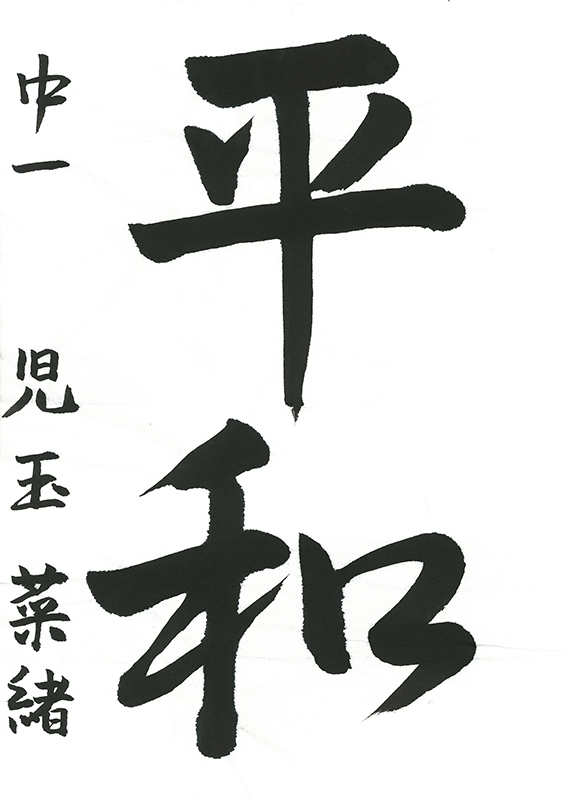 平和
中一 児玉菜緒